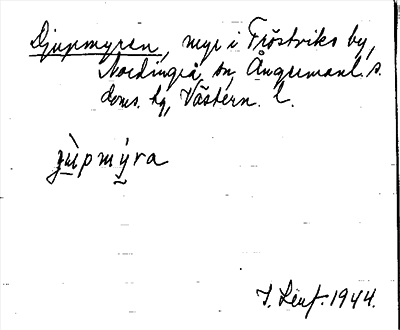 Djupmyren, myr i Fröstviks by,
Nordingrå sn, Ångermanl. s.
doms. hg, Västern. l.
jùpmýra
I. Leuf. 1944.